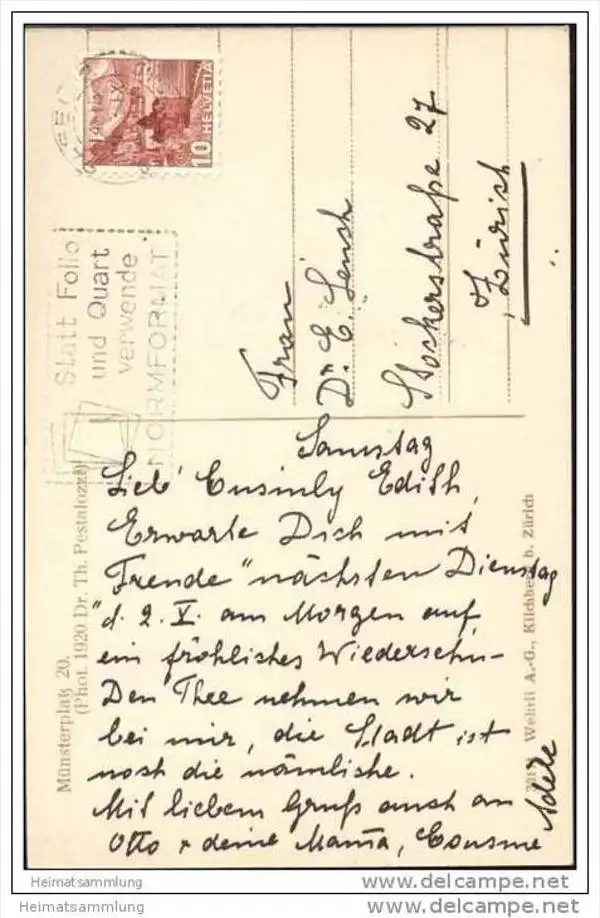 10 HELVETIA
Statt Folio
und Quart
verwende
NORMFORMAT
Frau
Dr. E. Lensch
Stockerstraße 27
Zürich
Münsterplatz 20.
(Phot. 1920 Dr. Th. Pestalozzi)
Samstag
Lieb' Cusinly Edith,
Erwarte Dich mit
Freude nächsten Dienstag
d. 2. V. am Morgen auf
ein fröhliches Wiedersehn–
Den Thee nehmen wir
bei mir, die Stadt ist
noch die nämliche.
Mit liebem Gruß auch an
Otto & deine Mama, Cousine
Adèle
Wehrli A.-G., Kilchberg b. Zürich
Heimatsammlung
Heimatsammlung
www.delcampe.net
www.delcampe.net